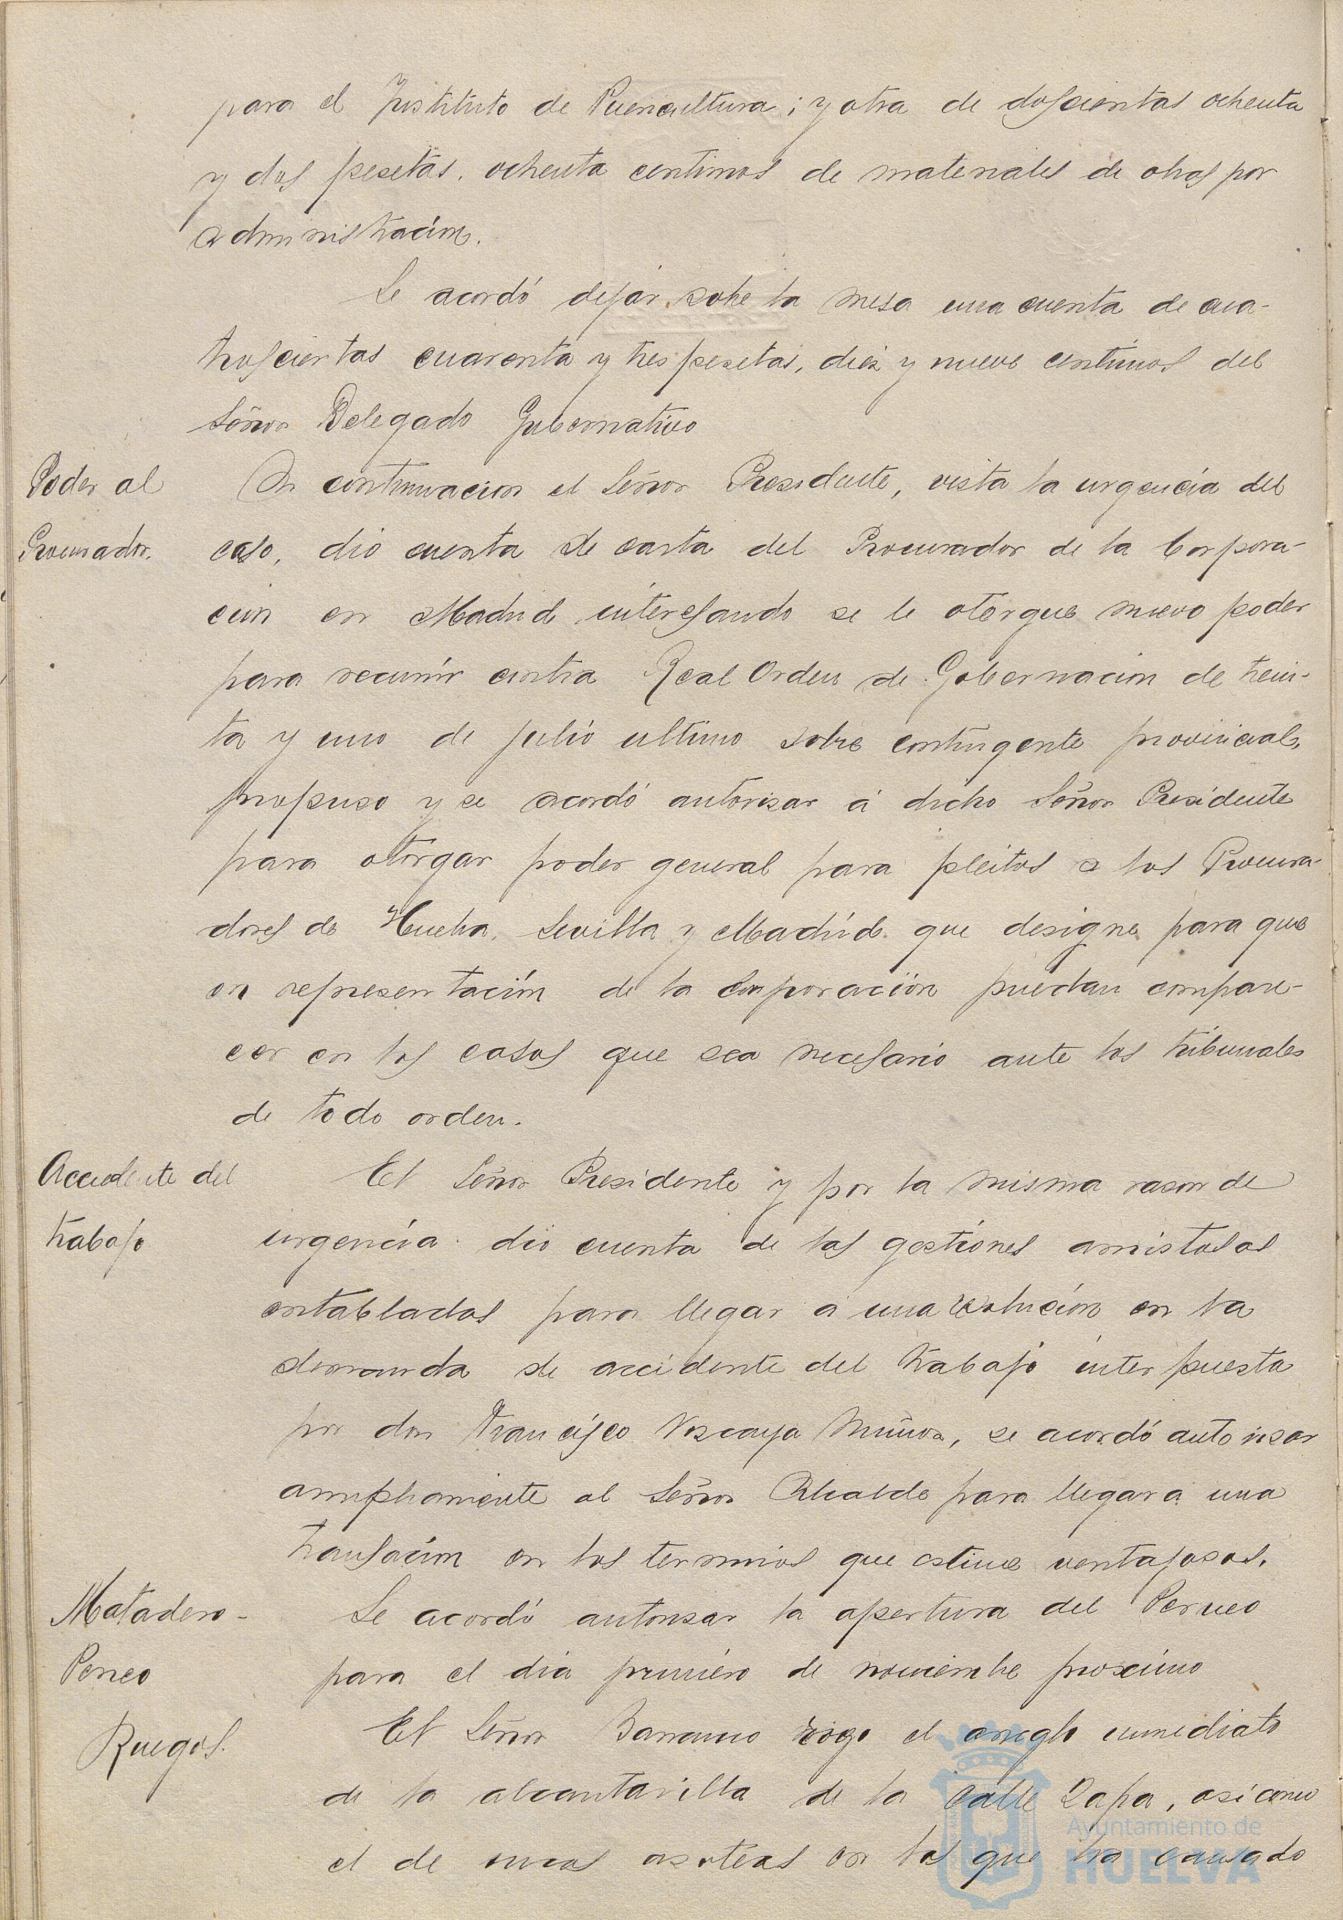 para el Instituto de Puericultura; y otra de doscientas ochenta
y dos pesetas, ochenta centimos de materiales de obras por
administración.
Se acordó dejar sobre la mesa una cuenta de cua-
troscientas cuarenta y tres pesetas, diez y nueve centimos del
Señor Delegado Gubernativo
Poder al
Procurador.
A continuacion el Señor Presidente, vista la urgencia del
caso, dió cuenta de carta del Procurador de la Corpora-
ción en Madrid interesando se le otorgue nuevo poder
para recurrir contra Real Orden de Gobernación de trein-
ta y uno de julio ultimo sobre contingente provincial,
propuso y se acordó autorizar á dicho Señor Presidente
para otorgar poder general para pleitos a los Procura-
dores de Huelva, Sevilla y Madrid que designe para que
en representación de la Corporación puedan compare-
cer en los casos que sea necesario ante los tribunales
de todo orden.
Accidente del
trabajo
El Señor Presidente y por la misma razon de
urgencia dió cuenta de las gestiones amistosas
entabladas para llegar á una solución en la
demanda de accidente del trabajo interpuesta
por don Francisco Vizcaya Muñoz, se acordó autorizar
ampliamente al Señor Alcalde para llegar a una
transación en los terminos que estime ventajosos.
Matadero-
Perneo
Se acordó autorizar la apertura del Perneo
para el dia primero de noviembre proximo
Ruegos.
El Señor Barranco rogo el arreglo inmediato
de la alcantarilla de la calle Rapa, asi como
el de unas azoteas en las que ha causado
Ayuntamiento de
HUELVA